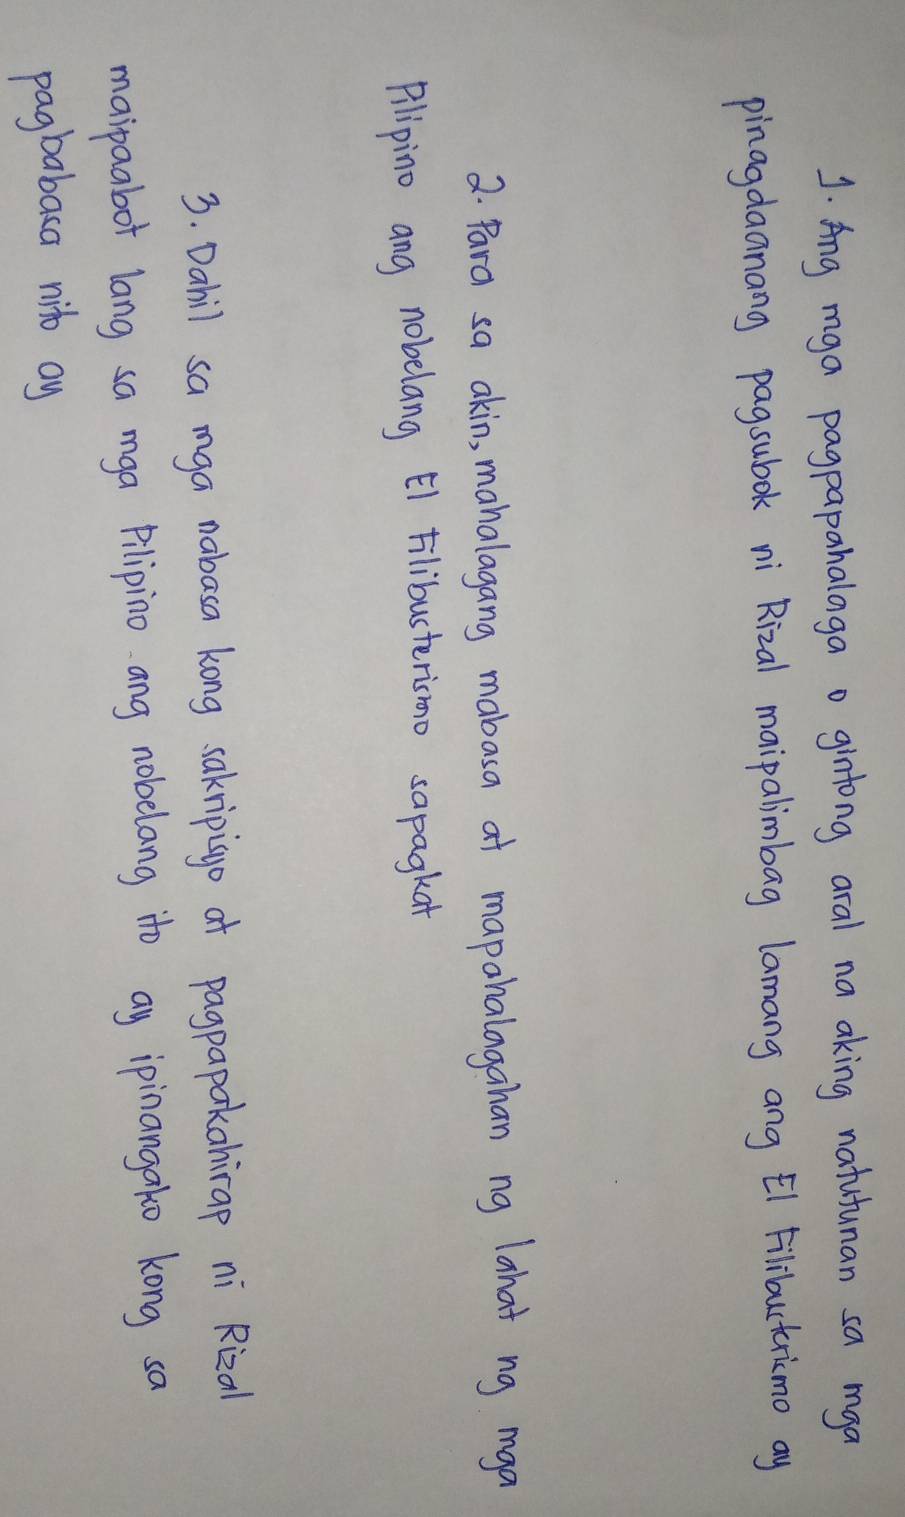 1. Ang mga pagpapahalaga o gintong aral na aking natutunan sa mga
pinagdaanang pagsubok ni Rizal maipalimbag lamang ang El Filibusterismo ay
2. Para sa akin, mahalagang mabasa at mapahalagahan ng lahat ng mga
Pilipino ang nobelang El Filibusterismo sapagkat
3. Dahil sa mga nabasa kong sakripisyo at pagpapakahirap ni Rizal
maipaabot lang sa mga Pilipino ang nobelang ito ay ipinangako kong sa
pagbabasa nito ay